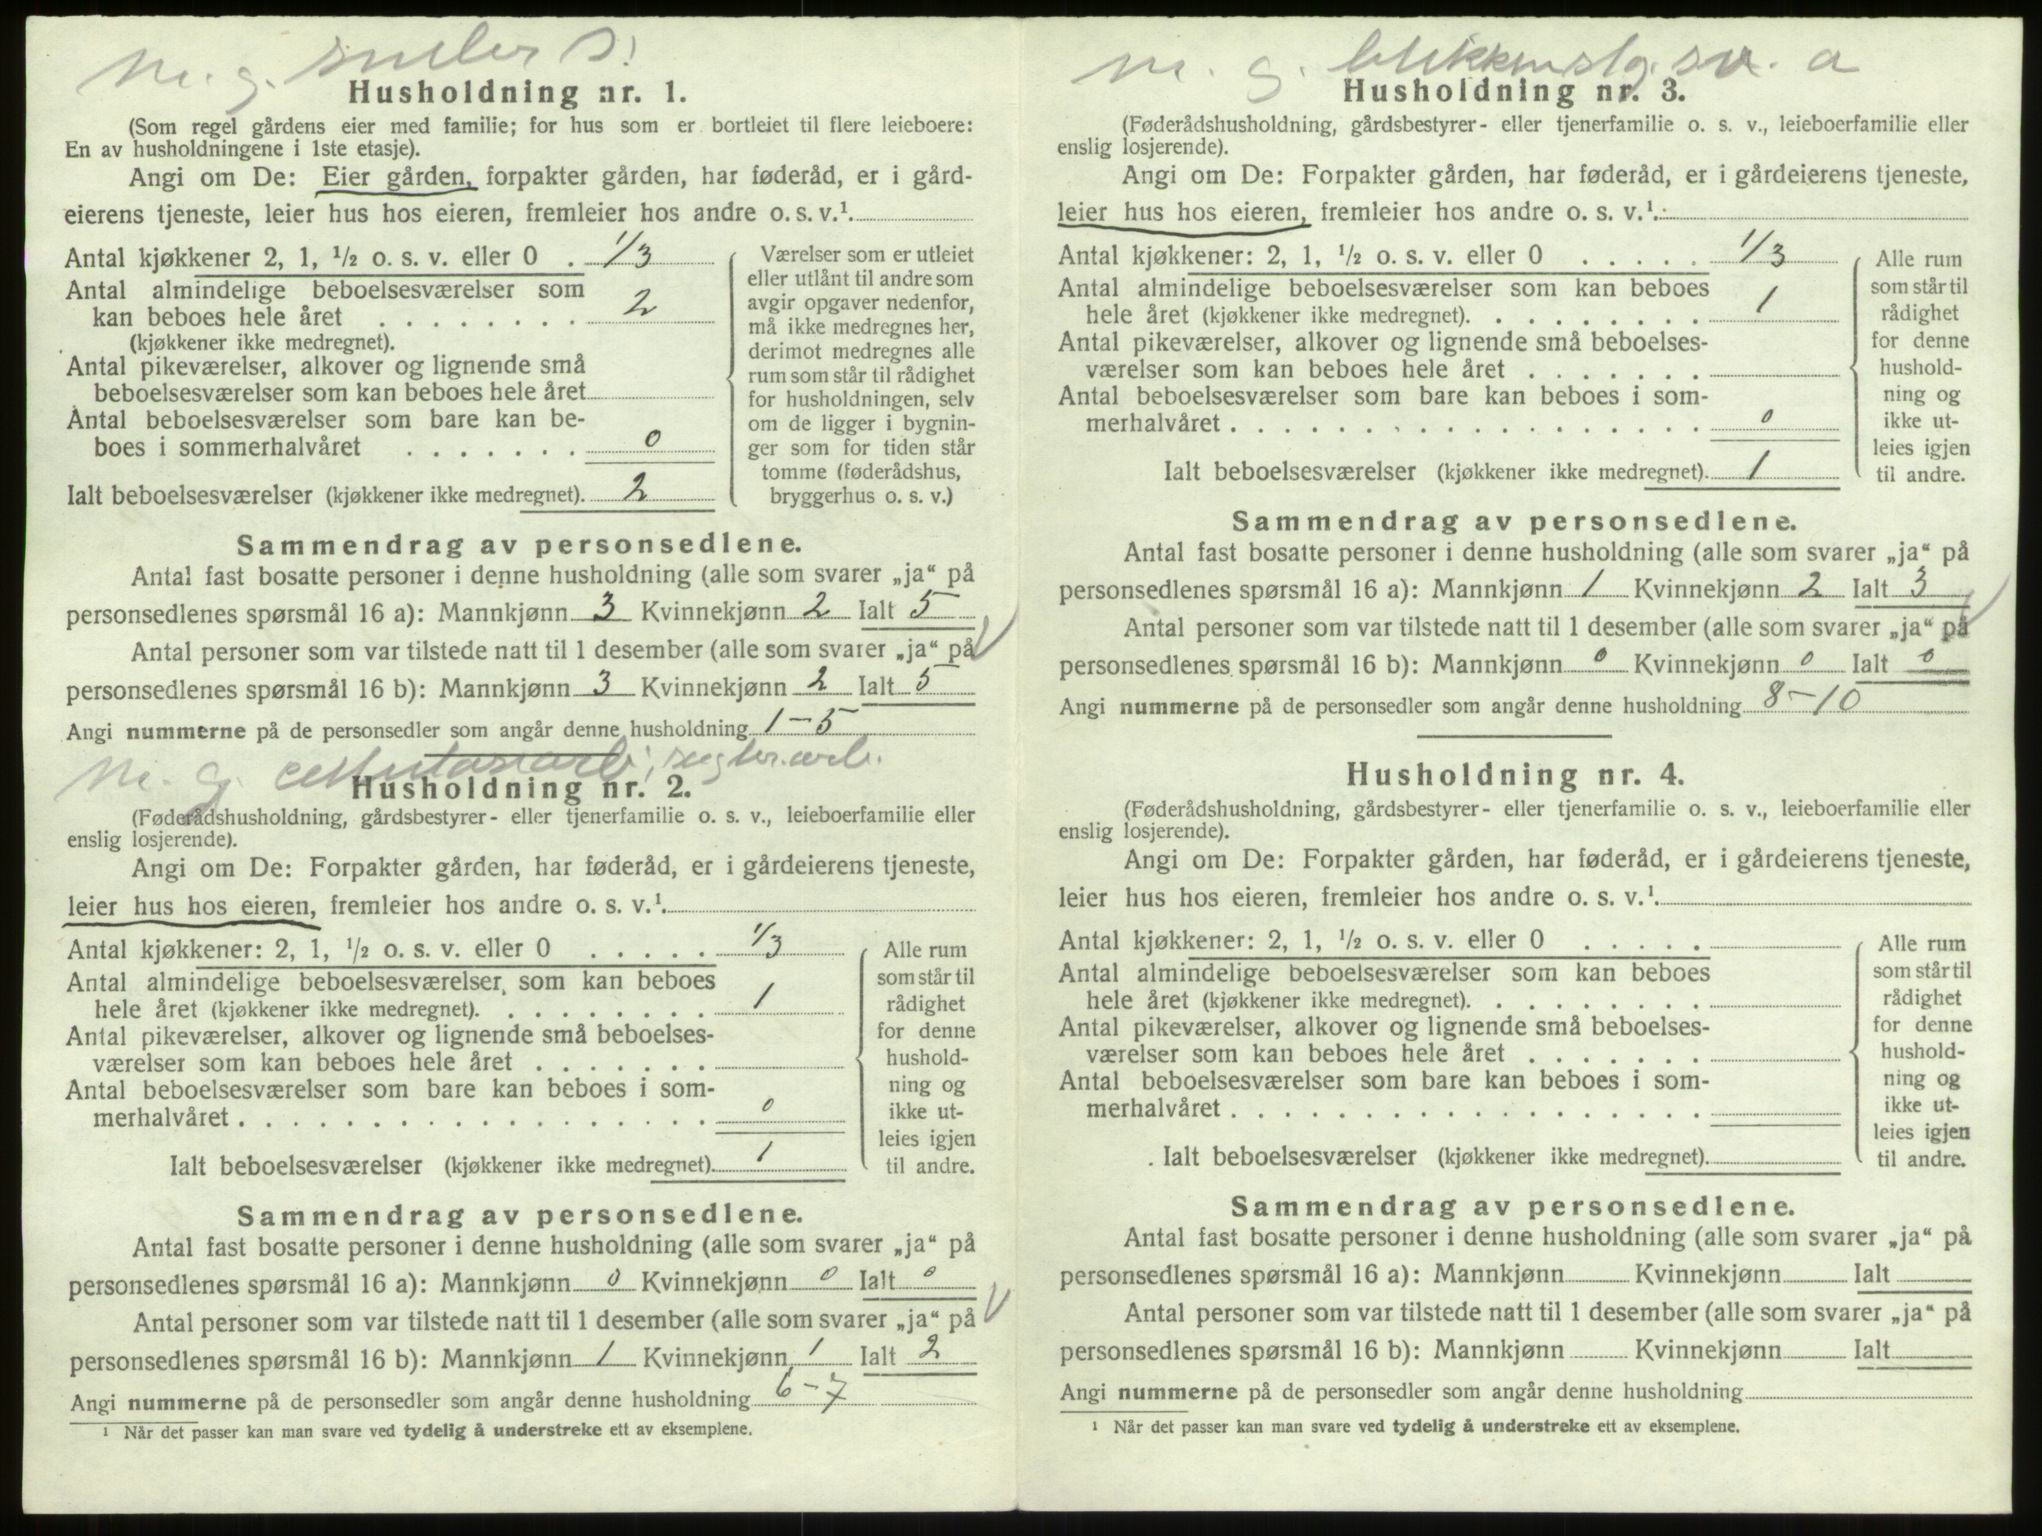 m. g. snekker s.
Husholdning nr. 1.
(Som regel gårdens eier med familie; for hus som er bortleiet til flere leieboere:
En av husholdningene i 1ste etasje).
Angi om De: Eier gården, forpakter gården, har føderåd, er i gård-
eierens tjeneste, leier hus hos eieren, fremleier hos andre o. s. v.¹.
Antal kjøkkener 2, 1, ½ o. s. v. eller 0 . 1/3
Antal almindelige beboelsesværelser som
kan beboes hele året . . . . . . . . 2
(kjøkkener ikke medregnet).
Antal pikeværelser, alkover og lignende små
beboelsesværelser som kan beboes hele året
Antal beboelsesværelser som bare kan be-
boes i sommerhalvåret . . . . . . . 0
Ialt beboelsesværelser (kjøkkener ikke medregnet). 2
Værelser som er utleiet
eller utlånt til andre som
avgir opgaver nedenfor,
må ikke medregnes her,
derimot medregnes alle
rum som står til rådighet
for husholdningen, selv
om de ligger i bygnin-
ger som for tiden står
tomme (føderådshus,
bryggerhus o. s. v.)
Sammendrag av personsedlene.
Antal fast bosatte personer i denne husholdning (alle som svarer „ja“ på
personsedlenes spørsmål 16 a): Mannkjønn 3 Kvinnekjønn 2 Ialt 5
Antal personer som var tilstede natt til 1 desember (alle som svarer „ja“ på
personsedlenes spørsmål 16 b): Mannkjønn 3 Kvinnekjønn 2 Ialt 5
Angi nummerne på de personsedler som angår denne husholdning 1-5
m. g.
Husholdning nr. 2.
(Føderådshusholdning, gårdsbestyrer- eller tjenerfamilie o. s. v., leieboerfamilie eller
enslig losjerende).
Angi om De: Forpakter gården, har føderåd, er i gårdeierens tjeneste,
leier hus hos eieren, fremleier hos andre o. s. v.¹.
Antal kjøkkener: 2, 1, ½ o. s. v. eller 0 . . . . . 1/3
Antal almindelige beboelsesværelser som kan beboes
hele året (kjøkkener ikke medregnet). . . . . . . . . 1
Antal pikeværelser, alkover og lignende små beboelses-
værelser som kan beboes hele året . . . . . . .
Antal beboelsesværelser som bare kan beboes i som-
merhalvåret . . . . . . . . . . . . . . . . . . 0
Ialt beboelsesværelser (kjøkkener ikke medregnet). 1
Alle rum
som står til
rådighet
for denne
hushold-
ning og
ikke ut-
leies igjen
til andre.
Sammendrag av personsedlene.
Antal fast bosatte personer i denne husholdning (alle som svarer „ja“ på
personsedlenes spørsmål 16 a): Mannkjønn 0 Kvinnekjønn 0 Ialt 0
Antal personer som var tilstede natt til 1 desember (alle som svarer „ja“ på
personsedlenes spørsmål 16 b): Mannkjønn 1 Kvinnekjønn 1 Ialt 2
Angi nummerne på de personsedler som angår denne husholdning 6-7
¹ Når det passer kan man svare ved tydelig å understreke ett av eksemplene.
m. g. blikkenslg. sv. a
Husholdning nr. 3.
(Føderådshusholdning, gårdsbestyrer- eller tjenerfamilie o. s. v., leieboerfamilie eller
enslig losjerende).
Angi om De: Forpakter gården, har føderåd, er i gårdeierens tjeneste,
leier hus hos eieren, fremleier hos andre o. s. v.¹.
Antal kjøkkener: 2, 1, ½ o. s. v. eller 0 . . . . . 1/3
Antal almindelige beboelsesværelser som kan beboes
hele året (kjøkkener ikke medregnet). . . . . . . . . 1
Antal pikeværelser, alkover og lignende små beboelses-
værelser som kan beboes hele året . . . . . . .
Antal beboelsesværelser som bare kan beboes i som-
merhalvåret . . . . . . . . . . . . . . . . . . 0
Ialt beboelsesværelser (kjøkkener ikke medregnet). 1
Alle rum
som står til
rådighet
for denne
hushold-
ning og
ikke ut-
leies igjen
til andre.
Sammendrag av personsedlene.
Antal fast bosatte personer i denne husholdning (alle som svarer „ja“ på
personsedlenes spørsmål 16 a): Mannkjønn 1 Kvinnekjønn 2 Ialt 3
Antal personer som var tilstede natt til 1 desember (alle som svarer „ja“ på
personsedlenes spørsmål 16 b): Mannkjønn 0 Kvinnekjønn 0 Ialt 0
Angi nummerne på de personsedler som angår denne husholdning 8-10
Husholdning nr. 4.
(Føderådshusholdning, gårdsbestyrer- eller tjenerfamilie o. s. v., leieboerfamilie eller
enslig losjerende).
Angi om De: Forpakter gården, har føderåd, er i gårdeierens tjeneste,
leier hus hos eieren, fremleier hos andre o. s. v.¹.
Antal kjøkkener: 2, 1, ½ o. s. v. eller 0 . . . . .
Antal almindelige beboelsesværelser som kan beboes
hele året (kjøkkener ikke medregnet). . . . . . . . .
Antal pikeværelser, alkover og lignende små beboelses-
værelser som kan beboes hele året . . . . . . .
Antal beboelsesværelser som bare kan beboes i som-
merhalvåret . . . . . . . . . . . . . . . . . .
Ialt beboelsesværelser (kjøkkener ikke medregnet).
Alle rum
som står til
rådighet
for denne
hushold-
ning og
ikke ut-
leies igjen
til andre.
Sammendrag av personsedlene.
Antal fast bosatte personer i denne husholdning (alle som svarer „ja“ på
personsedlenes spørsmål 16 a): Mannkjønn Kvinnekjønn Ialt
Antal personer som var tilstede natt til 1 desember (alle som svarer „ja“ på
personsedlenes spørsmål 16 b): Mannkjønn Kvinnekjønn Ialt
Angi nummerne på de personsedler som angår denne husholdning
¹ Når det passer kan man svare ved tydelig å understreke ett av eksemplene.